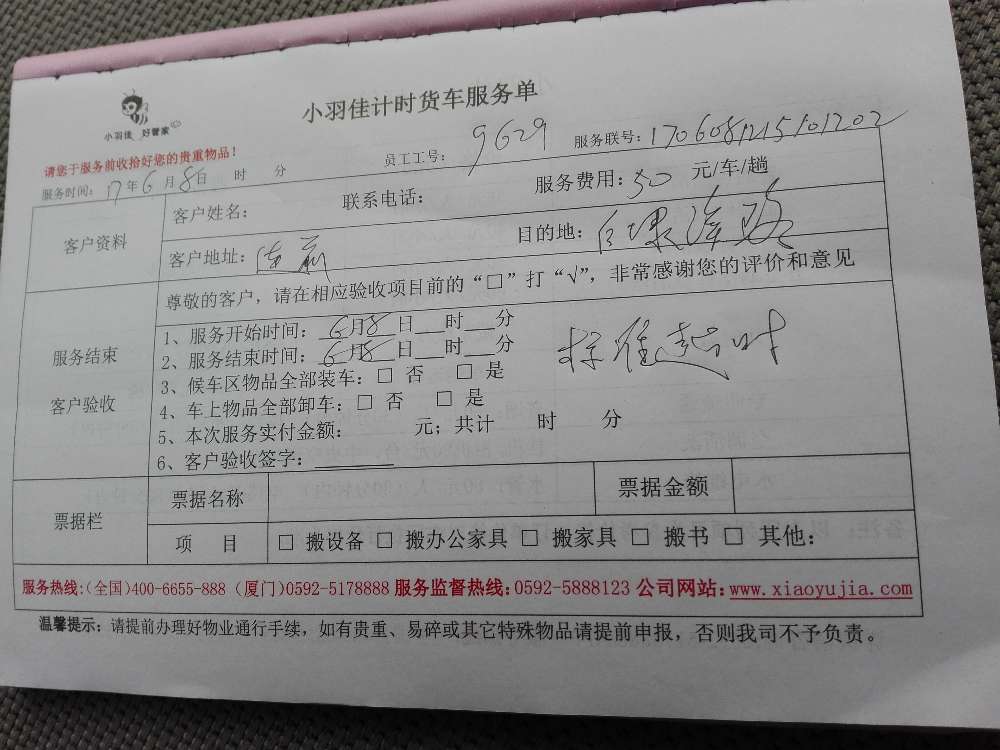 小羽佳计时货车服务单
小羽佳 好管家
请您于服务前收拾好您的贵重物品！
员工工号：9629 服务联号：1706081215101202
服务时间：17年6月8日 时 分
客户资料
客户姓名： 联系电话： 服务费用：50 元/车/趟
客户地址： 目的地：
尊敬的客户，请在相应验收项目前的“□”打“√”，非常感谢您的评价和意见
服务结束
客户验收
1、服务开始时间：6月8日__时__分
2、服务结束时间：6月8日__时__分
3、候车区物品全部装车：□ 否 □ 是
4、车上物品全部卸车：□ 否 □ 是
5、本次服务实付金额： 元；共计 时 分
6、客户验收签字：
票据栏
票据名称 票据金额
项 目 □ 搬设备 □ 搬办公家具 □ 搬家具 □ 搬书 □ 其他：
服务热线：(全国)400-6655-888 (厦门)0592-5178888 服务监督热线：0592-5888123 公司网站：www.xiaoyujia.com
温馨提示：请提前办理好物业通行手续，如有贵重、易碎或其它特殊物品请提前申报，否则我司不予负责。